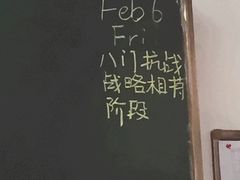 Feb 6
Fri
八门抗战
战略相持
阶段